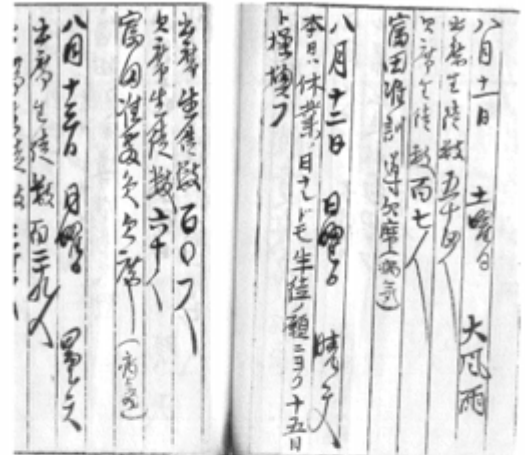 八月十一日 土曜日 大風雨
出席生徒数五十四人
欠席生徒数百七人
富田准訓導欠席(病気)
八月十二日 日曜日 晴天
本日ハ休業ノ日ナレドモ生徒ノ願ニヨリ十五日
ト振換フ
出席生徒数百〇一人
欠席生徒数六十人
富田准 欠席(病気)
八月十三日 月曜日 曇天
出席生徒数百二十九人